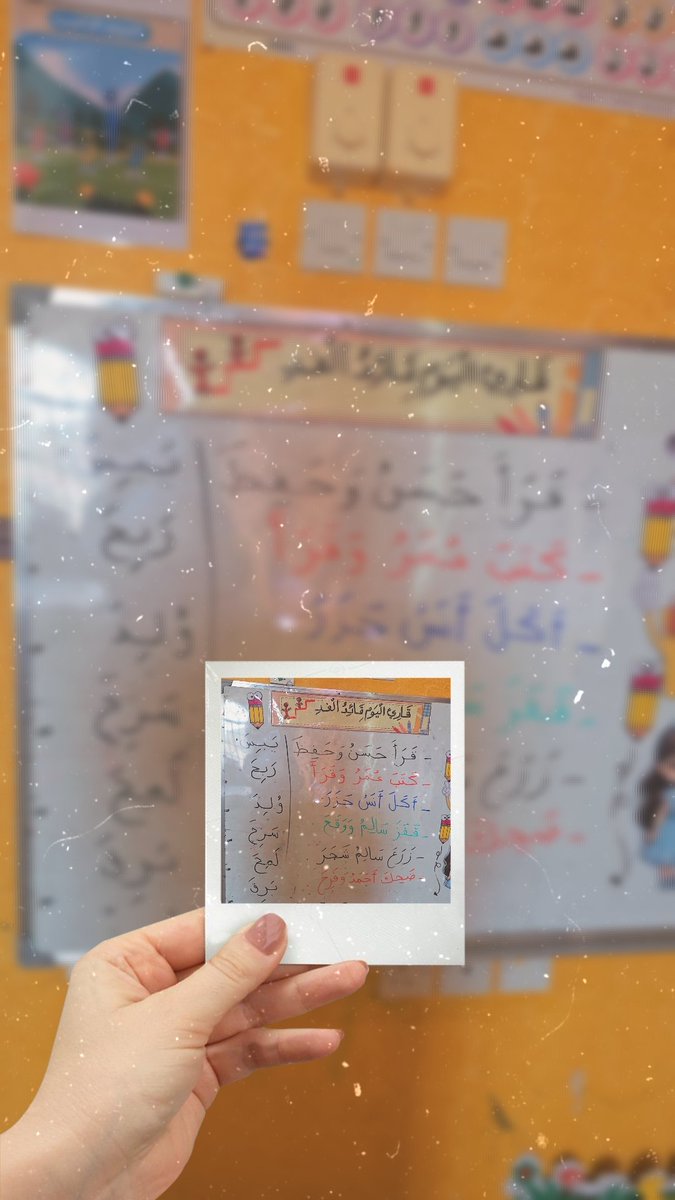 قَارِئُ الْيَوْمِ قَائِدُ الْغَدِ
- قَرَأَ حَسَنُ وَحَفِظَ
- كَتَبَ عُمَرُ وَقَرَأَ
- أَكَلَ أَنَسُ جَزَرَ
- قَفَزَ سَالِمُ وَوَقَعَ
- زَرَعَ سَالِمُ شَجَرَ
- ضَحِكَ أَحْمَدُ وَفَرِحَ
رَبِحَ
وُلِدَ